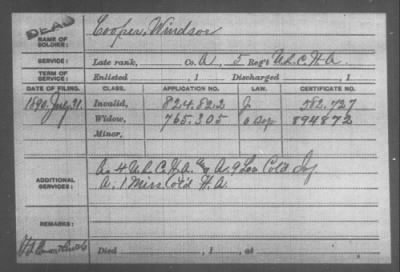 DEAD
NAME OF SOLDIER: Cooper, Windsor
SERVICE: Late rank, Co. A, 5 Reg't U.S.C.H.A.
TERM OF SERVICE: Enlisted , 1 Discharged , 1
DATE OF FILING. CLASS. APPLICATION NO. LAW. CERTIFICATE NO.
1890. July 31. Invalid, 824.822 J. 582.727
Widow, 765.205 894872
Minor,
ADDITIONAL SERVICES: 4 U.S.C.H.A. & A. 9 Lou Col'd Inf
A. 1 Miss Col'd H.A.
REMARKS:
Died , 1 , at